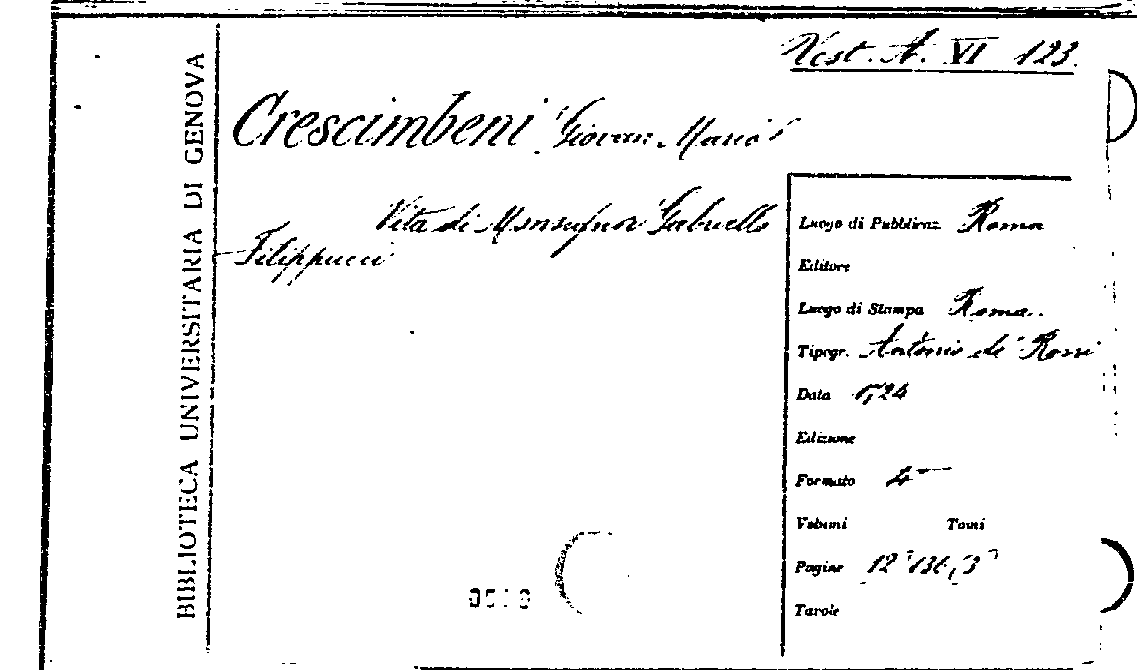 Vest. A. VI 123.
BIBLIOTECA UNIVERSITARIA DI GENOVA
Crescimbeni Giovan Mario
Vita di Monsignor Gabriello
Filippucci
Luogo di Pubblicaz. Roma
Editore
Luogo di Stampa Roma.
Tipogr. Antonio de' Rossi
Data 1724
Edizione
Formato 4°
Volumi Tomi
Pagine
Tavole